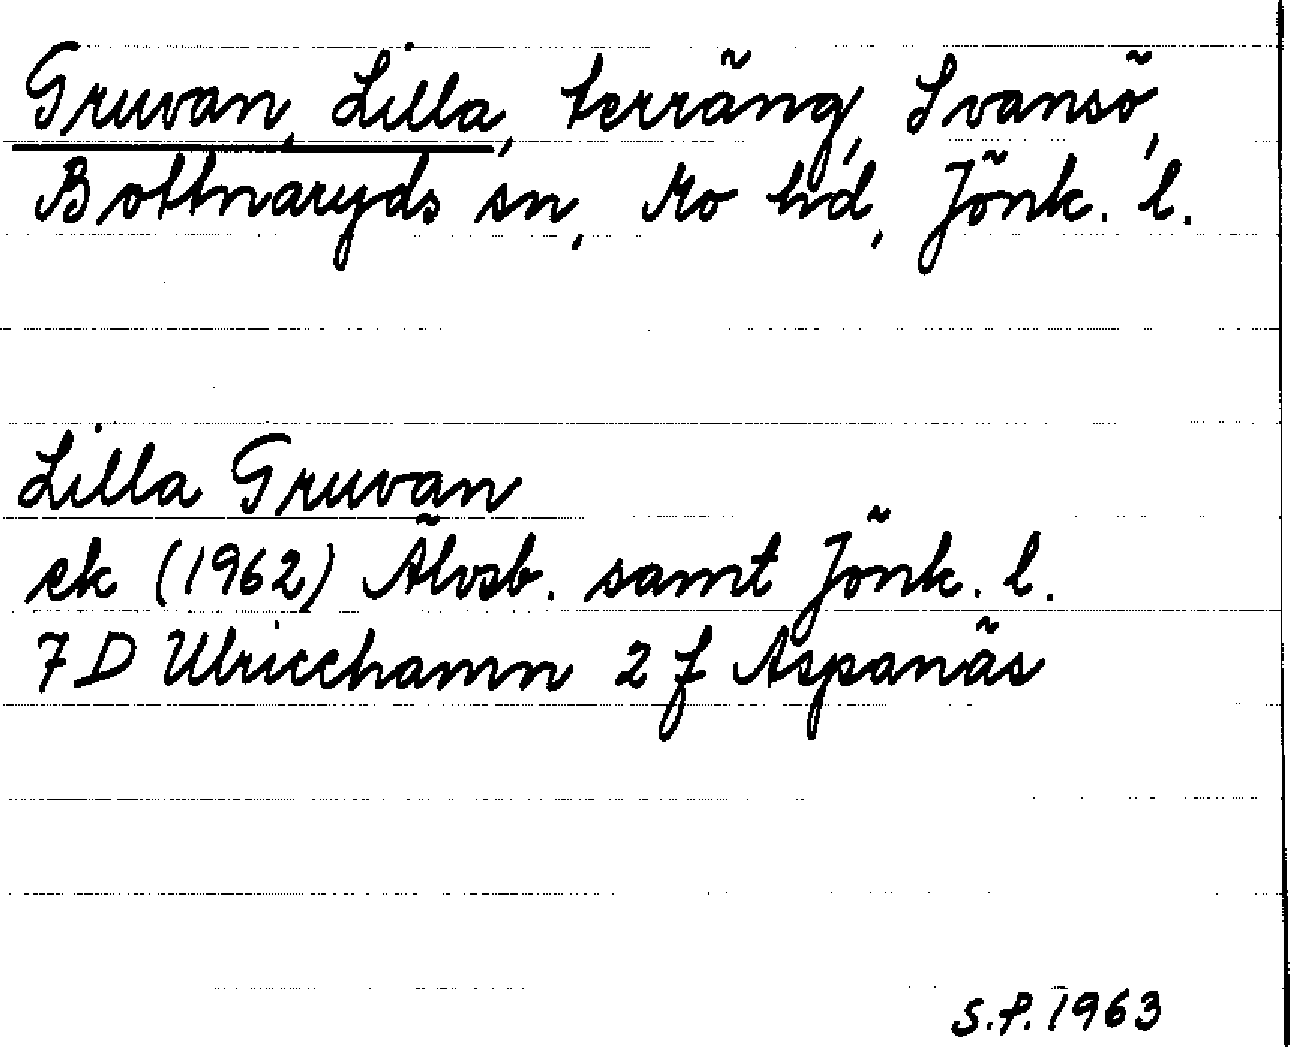 Gruvan, Lilla, terräng, Svansö,
Bottnaryds sn, Mo hd, Jönk. l.
Lilla Gruvan
ek (1962) Älvsb. samt Jönk. l.
7D Ulricehamn 2 f Aspanäs
S.P. 1963